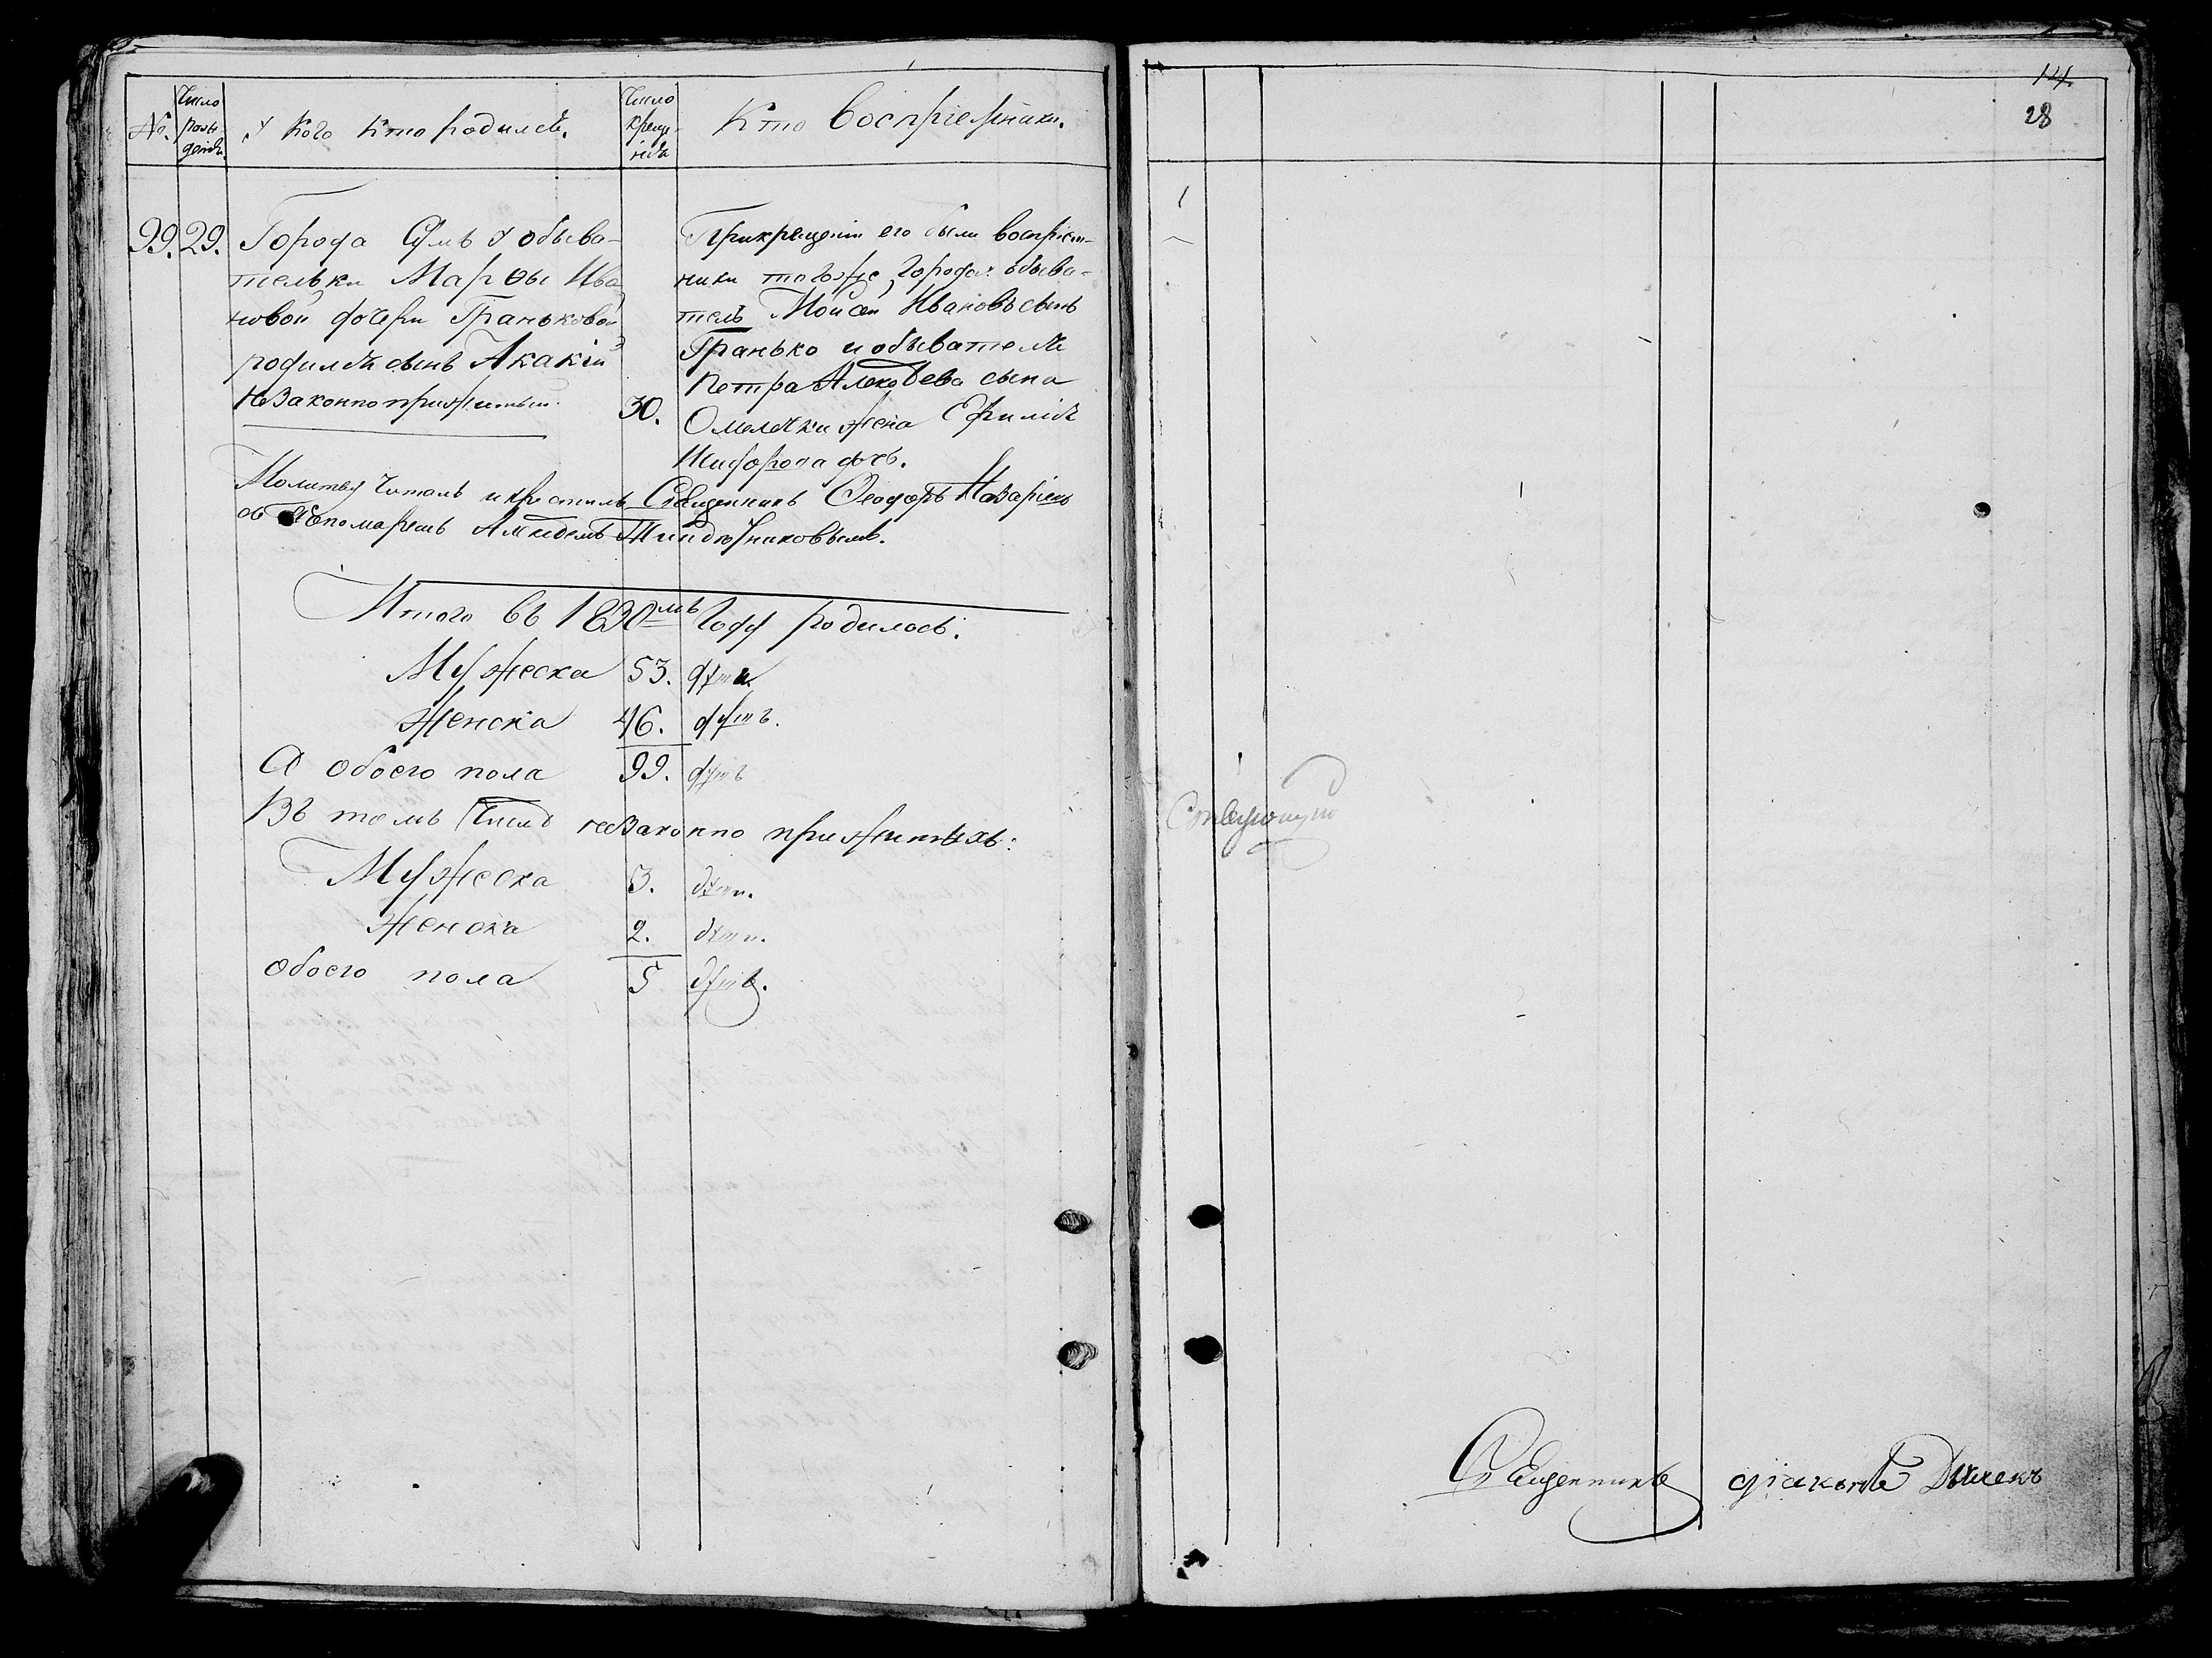 №.
Число рож- денія.
У кого кто родился.
Число креще- нія
Кто воспріемники.
14.
28
99. 29.
Города Сумъ у обыва-
тельки Марѳы Ива
новой дочери Граньковой
родился сынъ Акакій
незаконноприжитый.
30.
При крещеніи его были воспріем-
ники тогоже города обыва-
тель Мойсей Ивановъ сынъ
Гранько и обывателя
Петра Алексѣева сына
жена
дочь.
Молитвъ читалъ и крестилъ Священникъ Ѳеодоръ Назаріевъ
съ Пономаремъ
Итого въ 1830мъ году родилось:
Мужеска 53. душъ
Женска 46. душъ.
А обоего пола 99. душъ
Въ томъ числѣ незаконно прижитыхъ:
Мужеска 3. души.
Женска 2. души.
Обоего пола 5 душъ.
Священникъ діаконъ